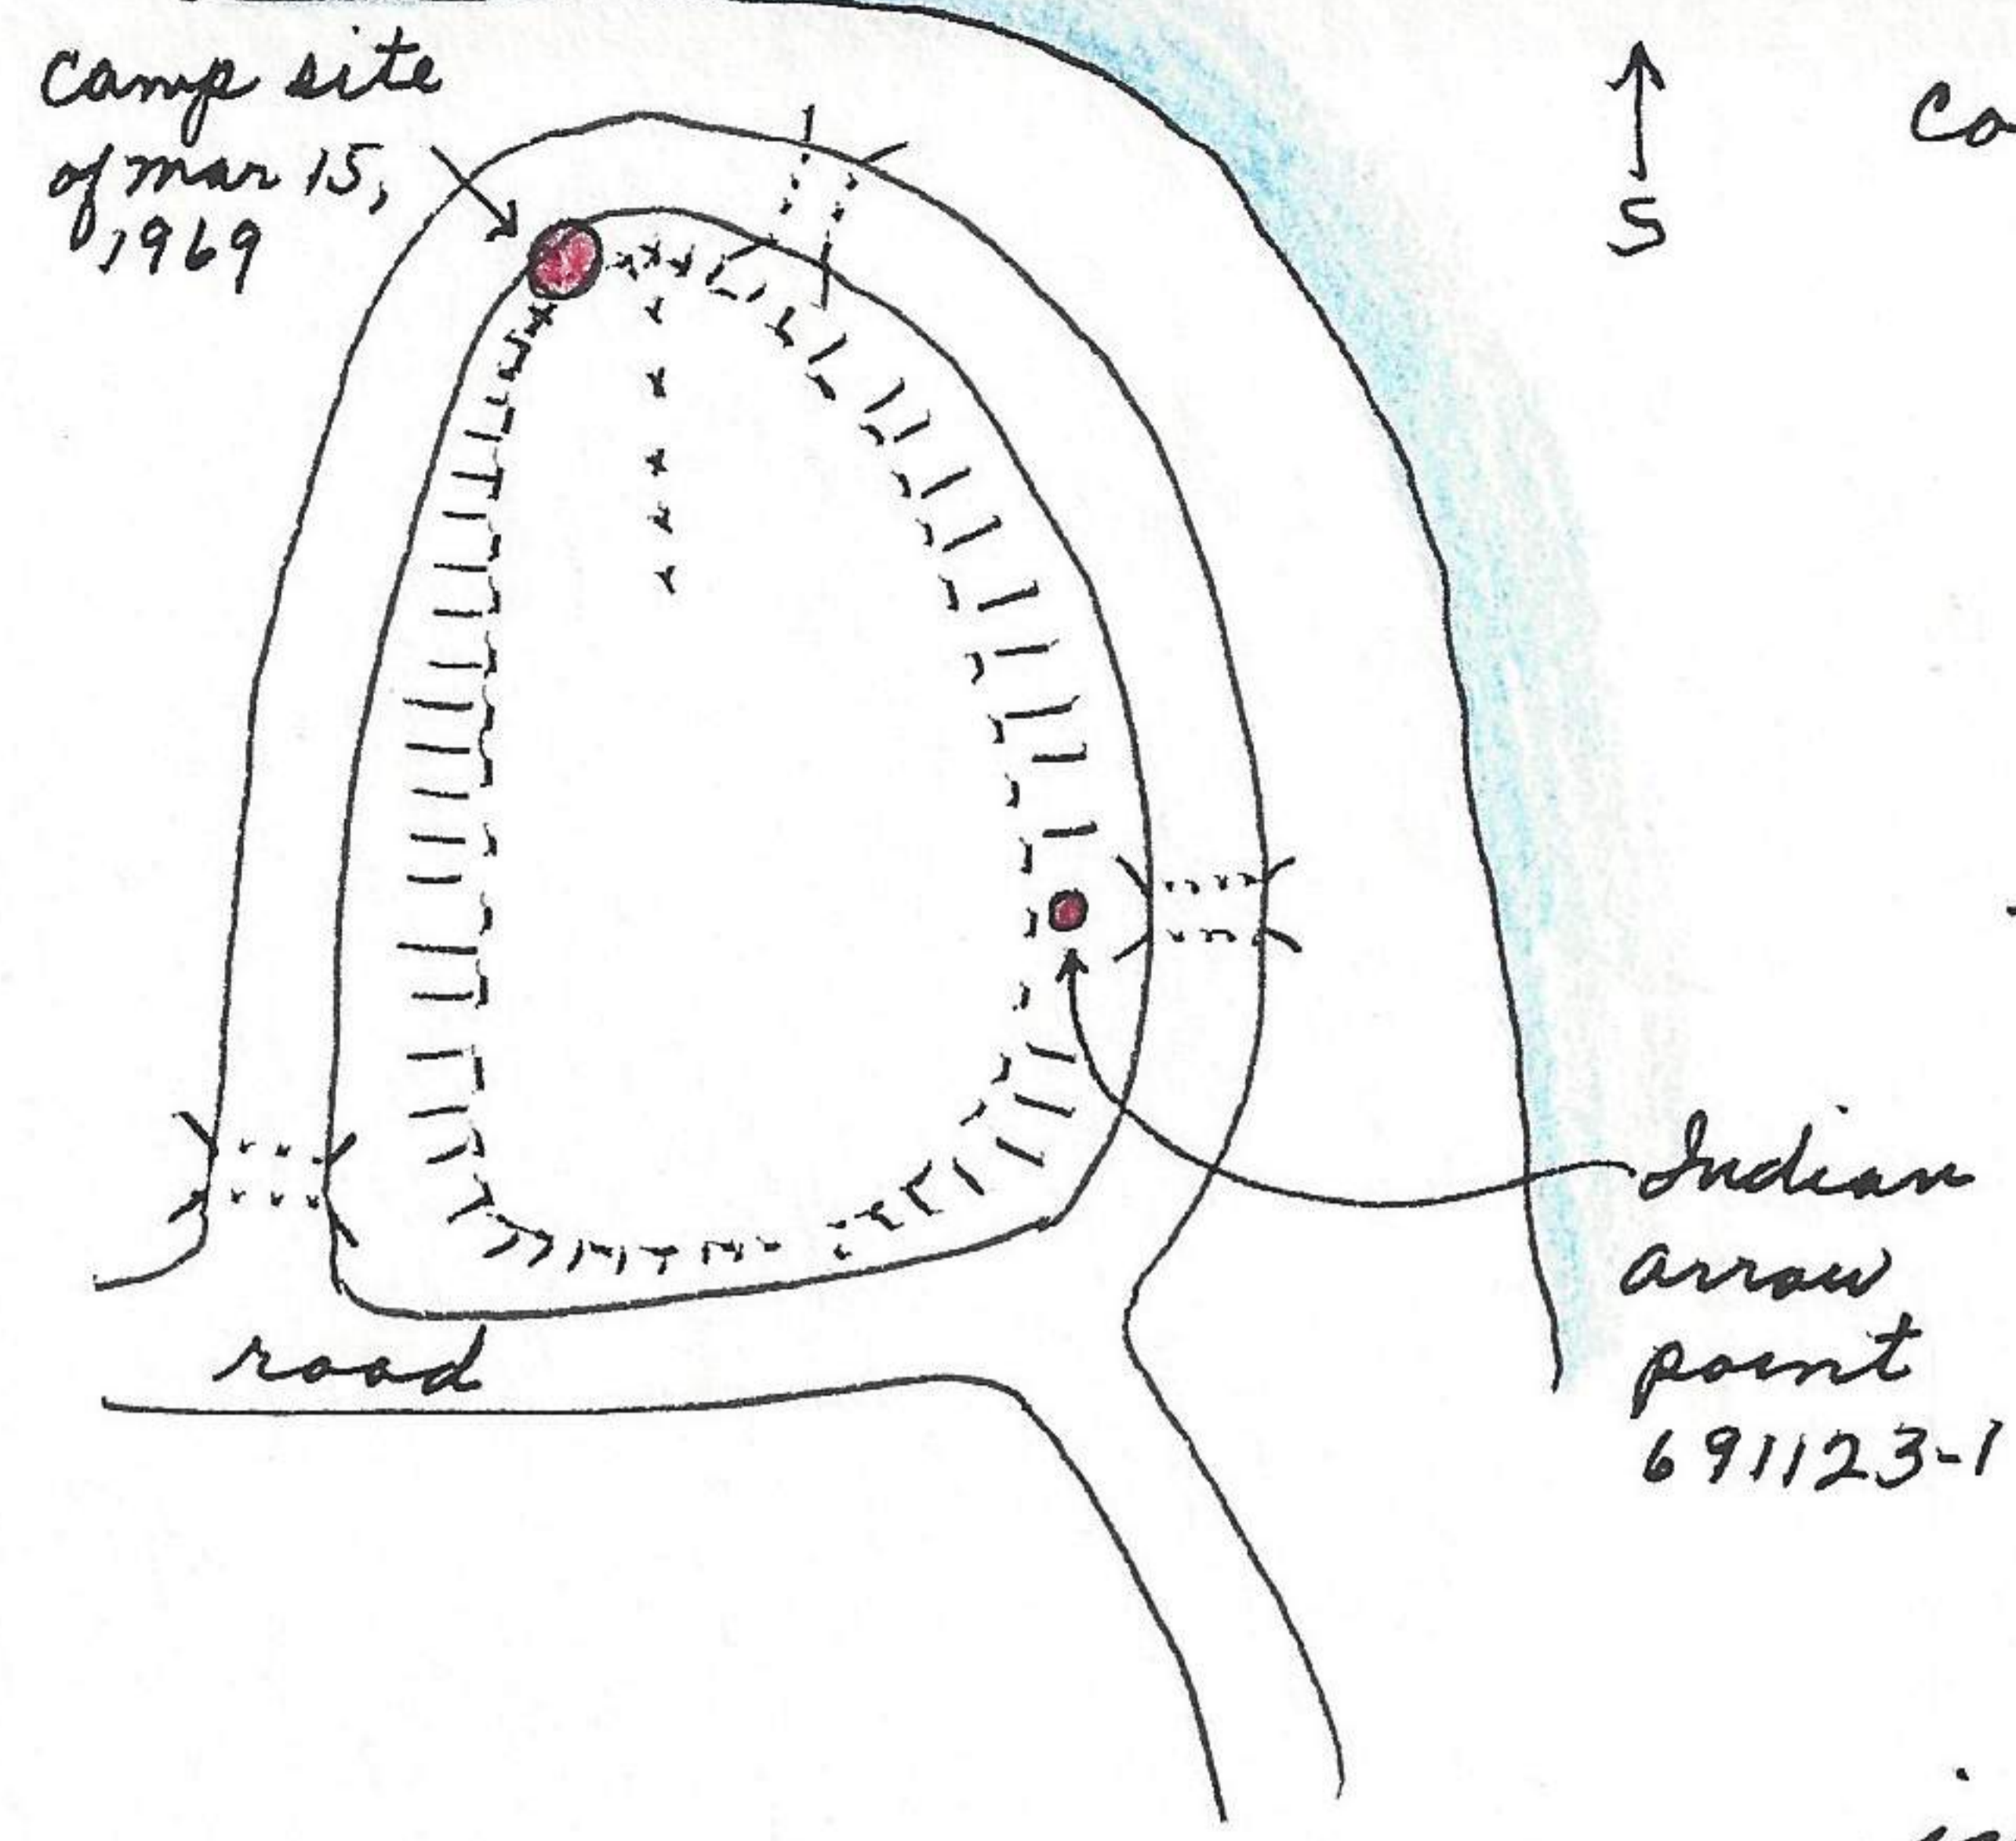 Camp site
of Mar 15,
1969
S
Co
road
Indian
arrow
point
691123-1